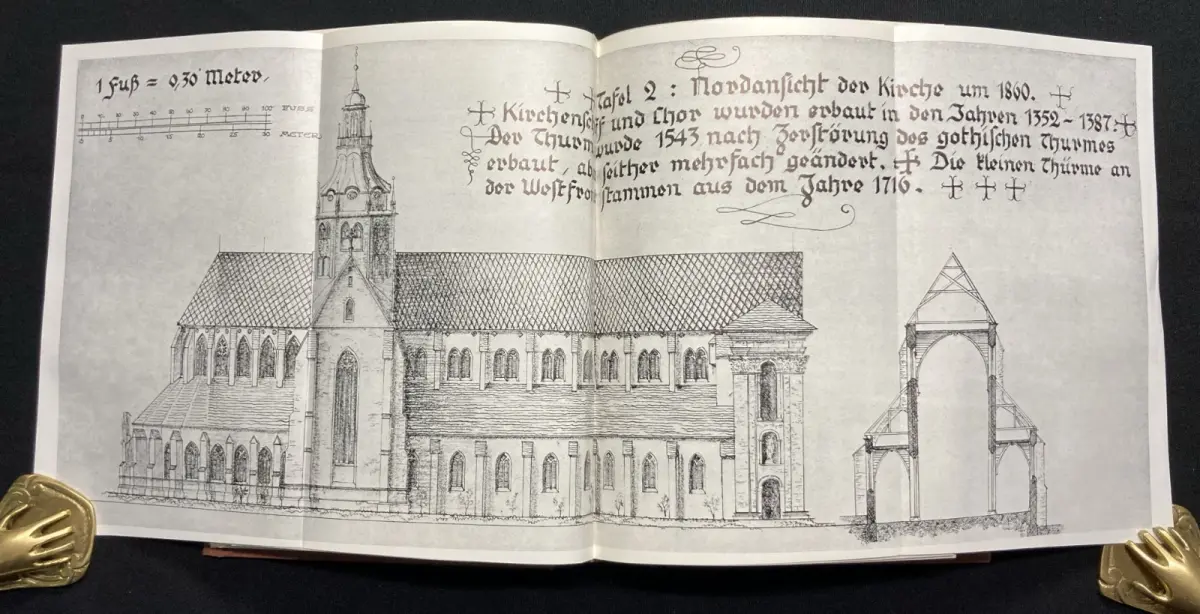 1 Fuß = 0,30 Meter.
10 20 30 40 50 60 70 80 90 100 FUSS
METER
0 5 10 15 20 25 30
Tafel 2 : Nordansicht der Kirche um 1860.
Kirchensch ff und Chor wurden erbaut in den Jahren 1352 - 1387.
Der Thurm wurde 1543 nach Zerstörung des gothischen Thurmes
erbaut, ab seither mehrfach geändert. Die kleinen Thürme an
der Westfron stammen aus dem Jahre 1716.